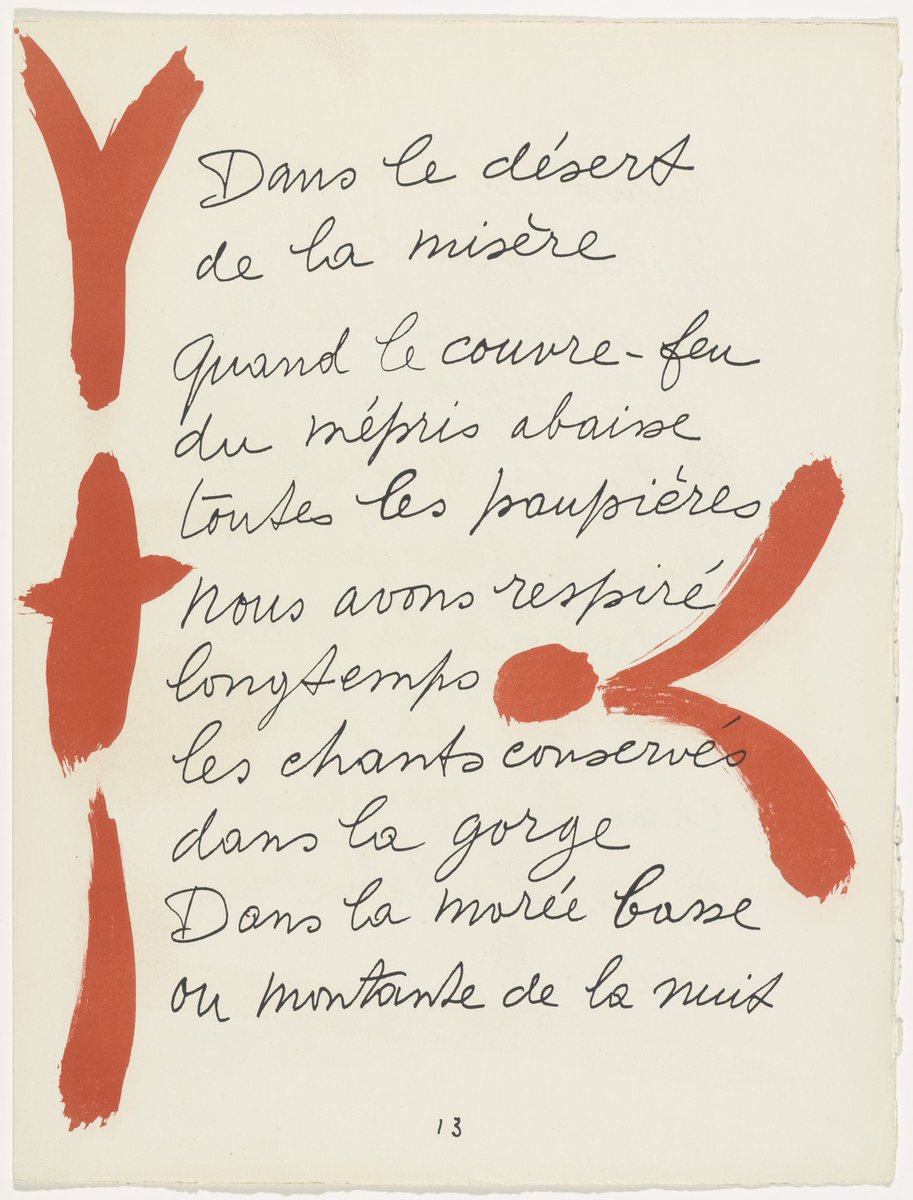 Dans le désert
de la misère
Quand le couvre-feu
du mépris abaisse
toutes les paupières
nous avons respiré
longtemps
les chants conservés
dans la gorge
Dans la morée basse
ou montante de la nuit
13